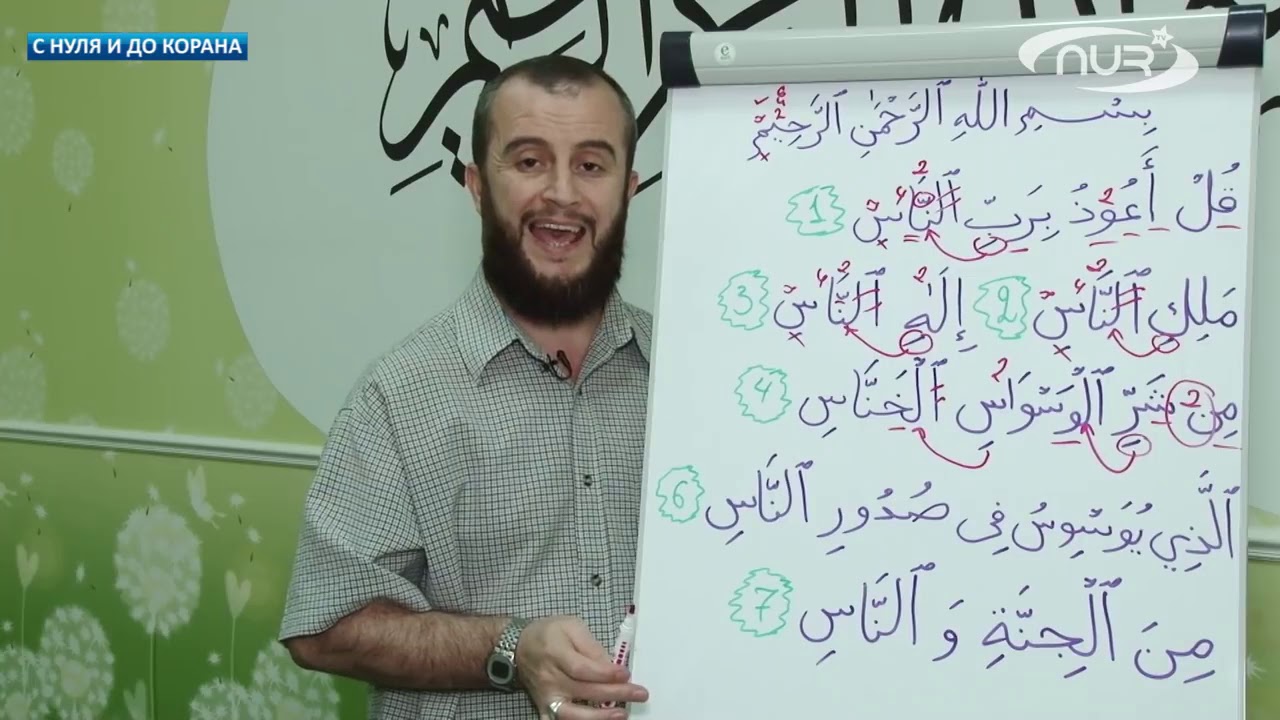 С НУЛЯ И ДО КОРАНА
NUR
بِسْمِ اللَّهِ ٱلرَّحْمَٰنِ ٱلرَّحِيْمِ
قُلْ أَعُوْذُ بِرَبِّ ٱلنَّاسِ 1
مَلِكِ ٱلنَّاسِ 2 إِلَٰهِ ٱلنَّاسِ 3
مِن شَرِّ ٱلْوَسْوَاسِ ٱلْخَنَّاسِ 4
ٱلَّذِي يُوَسْوِسُ فِى صُدُورِ ٱلنَّاسِ 6
مِنَ ٱلْجِنَّةِ وَ ٱلنَّاسِ 7